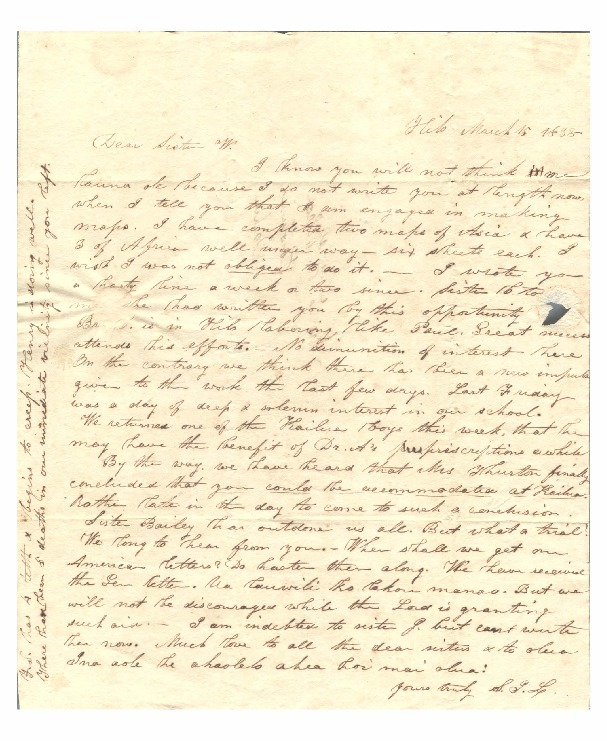 Hilo March 15 1838
Dear Sister W.
I know you will not think me
because I do not write you at length now,
when I tell you that I am engaged in making
maps. I have completed two maps of Asia & have
3 of Africa well under way – six sheets each. I
wish I was not obliged to do it. – I wrote you
a hasty line a week or two since. Sister
me she has written you by this opportunity
Br. is in Hilo laboring like Paul. Great success
attends his efforts. – No diminution of interest here
On the contrary we think there has been a new impulse
given to the work the last few days. Last Friday
was a day of deep & solemn interest in our school.
We returned one of the Kailua boys this week, that he
may have the benefit of Dr. A's prescriptions awhile
By the way, we have heard that Mrs Thurston finally
concluded that you could be accommodated at Kailua.
Rather late in the day to come to such a conclusion.
Sister Bailey has outdone us all. But what a trial!
We long to hear from you. – When shall we get our
American letters? Do hasten them along. We have received
the Gen letter. Ua ko makou manao. But we
will not be discouraged while the Lord is granting
such aid. – I am indebted to sister J. but cant write
her now. Much love to all the dear sisters & to olua
Ina aole he ahaolelo ahea hoi mai olua!
Yours truly S. L.
has a & begins to creep. Henry is doing well.
There has been 5 deaths in our immediate vicinity since you left.